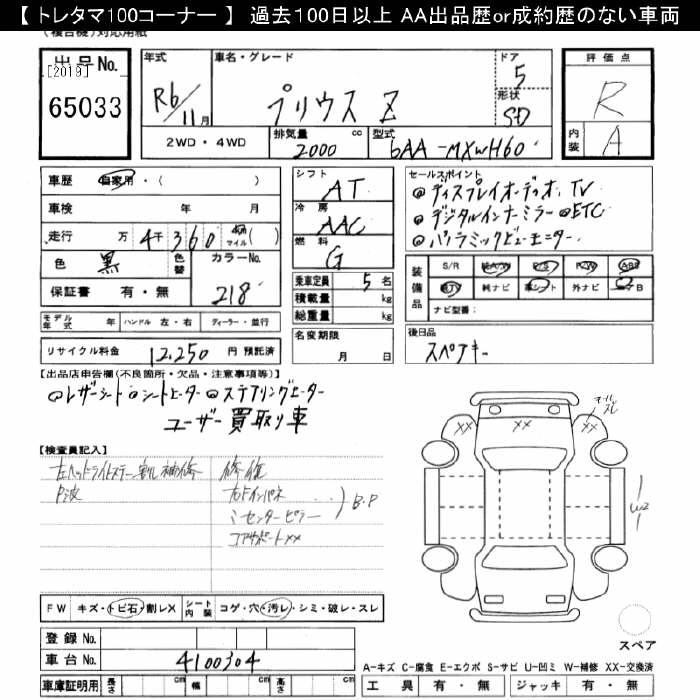 【 トレタマ100コーナー 】 過去100日以上 AA出品歴or成約歴のない車両
(複合機)対応用紙
出品No.
[2019]
65033
年式 R6/11月
車名・グレード プリウス Z
ドア 5
形状 SD
評価点 R
内装 A
2WD・4WD
排気量 2000 cc
型式 6AA-MXWH60
車歴 自家用・( )
車検 年 月
走行 万 4千360 km マイル ( )
色 黒 色替
カラーNo. 218
保証書 有・無
シフト AT
冷房 AAC
燃料 G
乗車定員 5名
積載量 kg
総重量 kg
名変期限 月 日
セールスポイント
◎ディスプレイオーディオ、TV
◎デジタルインナーミラー ◎ETC
◎パノラミックビューモニター
装備品 S/R 純A/W P/S P/W ABS
純TV 純ナビ 革シート 外ナビ エアB
ナビ型番:
モデル年式 年 ハンドル 左・右 ディーラー・並行
リサイクル料金 12,250 円 預託済
後日品
スペアキー
【出品店申告欄(不良箇所・欠品・注意事項等)】
◎レザーシート ◎シートヒーター ◎ステアリングヒーター
ユーザー買取り車
【検査員記入】
左ヘッドライトステー割れ補修 修復
P波 右ドインパネ
〃センターピラー
B・P
コアサポートXX
XX XX
W2
FW キズ・トビ石・割レX
シート内装 コゲ・穴・汚レ・シミ・破レ・スレ
登録No.
車台No. 4100304
スペア
A-キズ C-腐食 E-エクボ S-サビ U-凹ミ W-補修 XX-交換済
車庫証明用 長さ cm 幅 cm 高さ cm
工具 有・無 ジャッキ 有・無